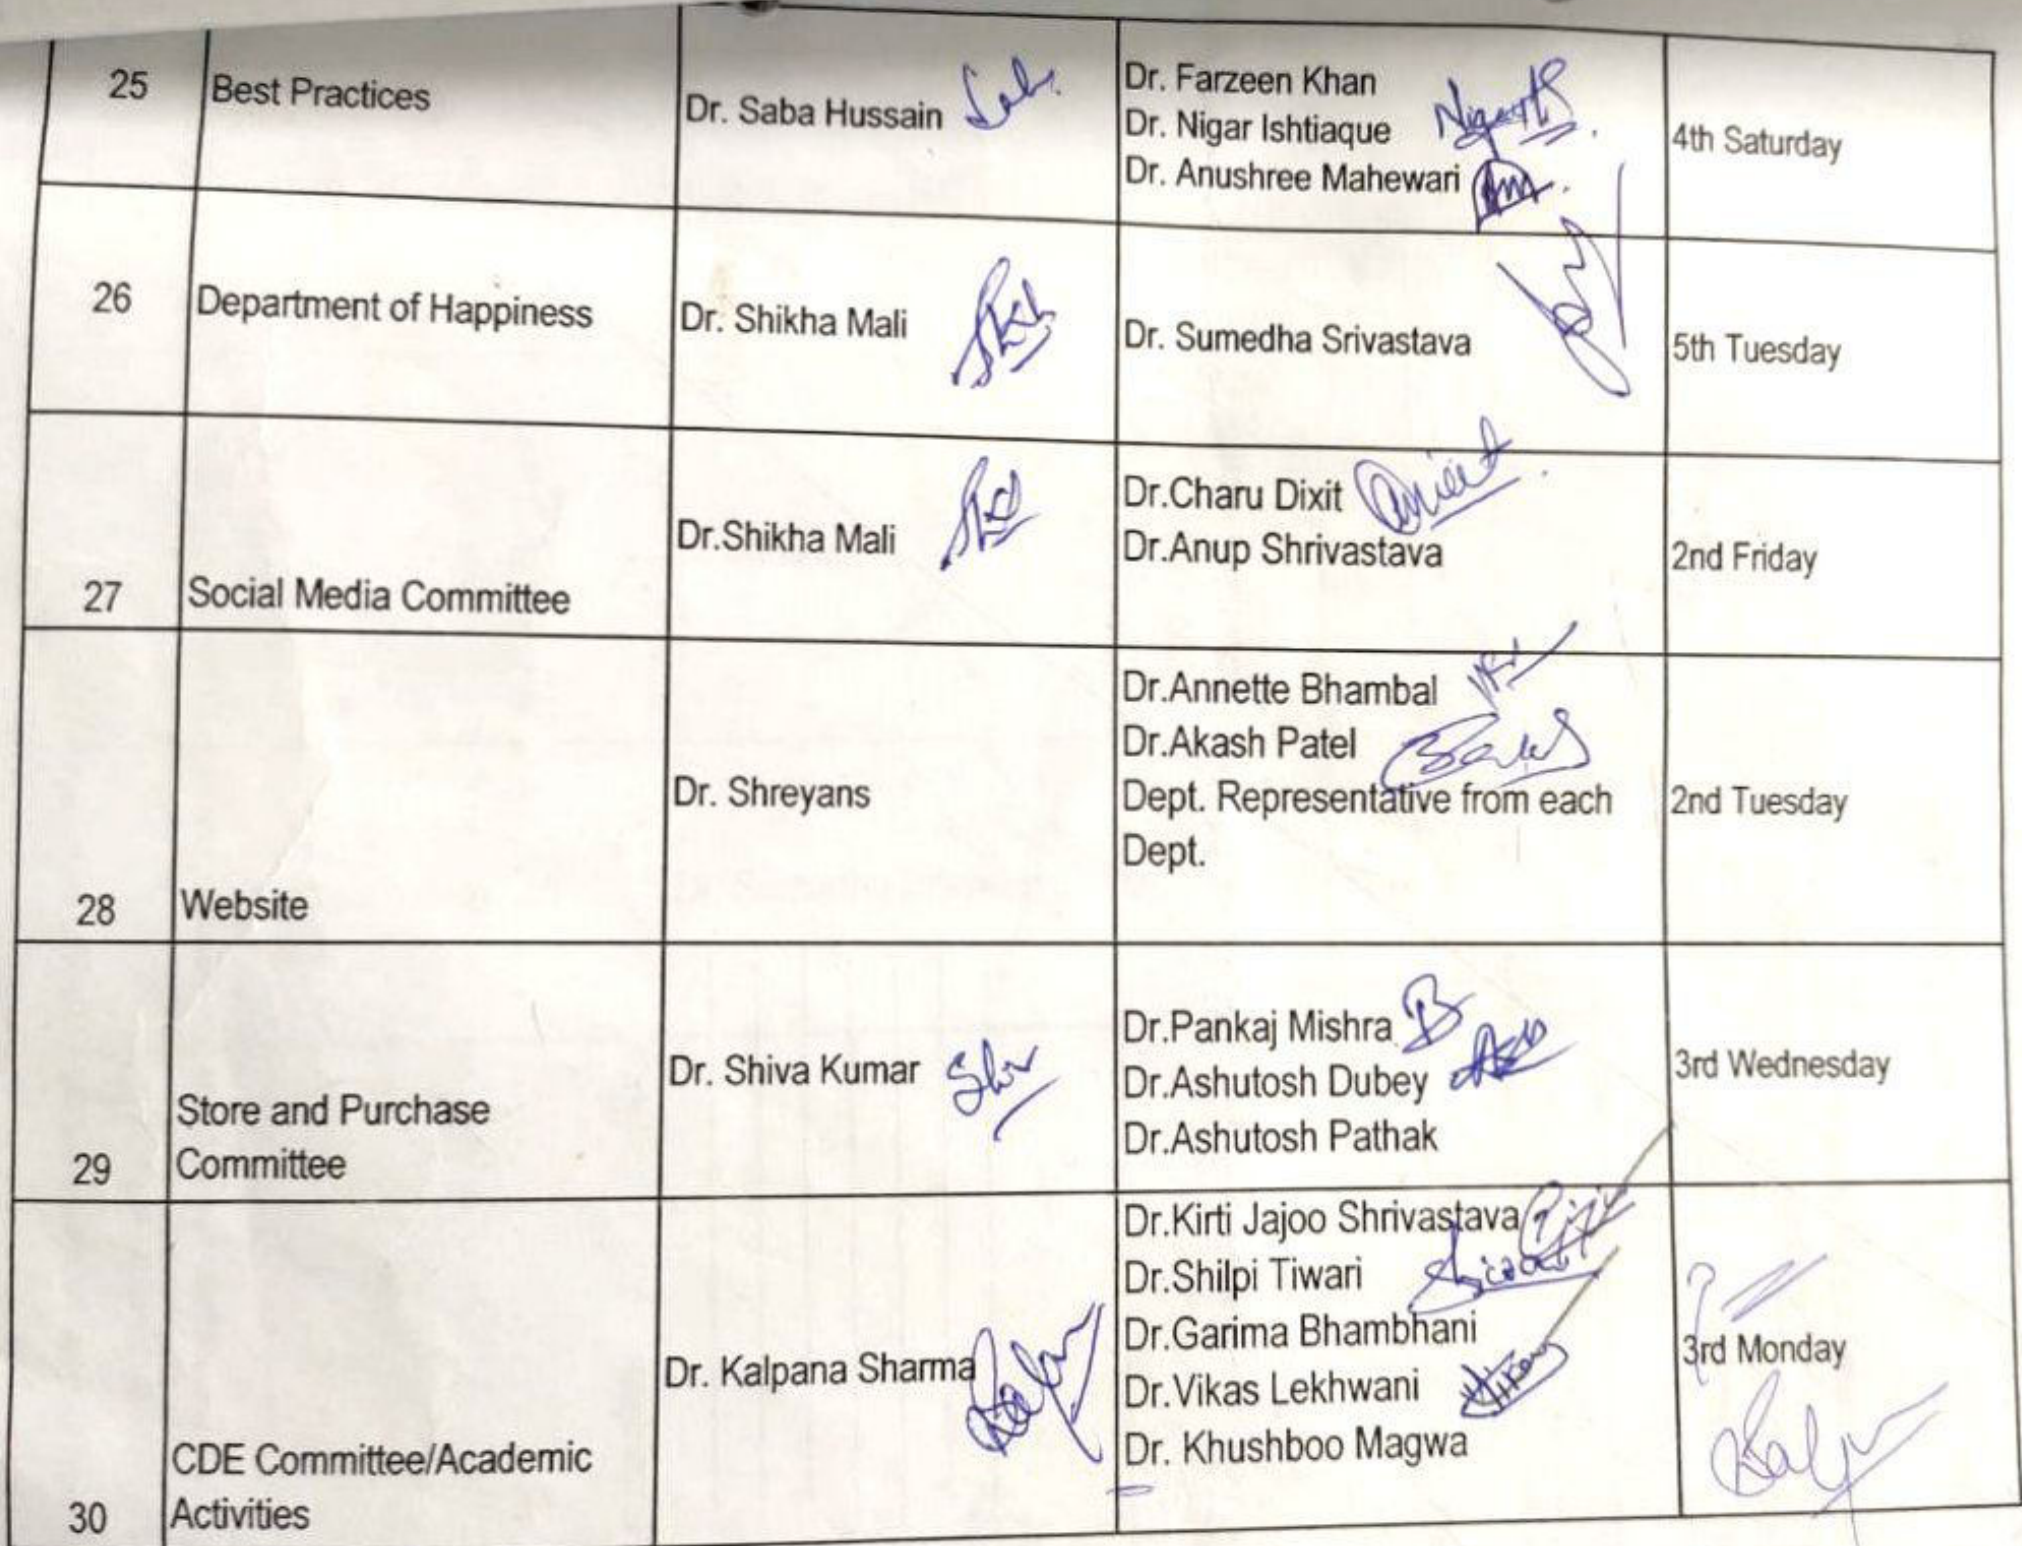 25
Best Practices
Dr. Saba Hussain
Dr. Farzeen Khan
Dr. Nigar Ishtiaque
Dr. Anushree Mahewari
4th Saturday
26
Department of Happiness
Dr. Shikha Mali
Dr. Sumedha Srivastava
5th Tuesday
27
Social Media Committee
Dr.Shikha Mali
Dr.Charu Dixit
Dr.Anup Shrivastava
2nd Friday
28
Website
Dr. Shreyans
Dr.Annette Bhambal
Dr.Akash Patel
Dept. Representative from each
Dept.
2nd Tuesday
29
Store and Purchase
Committee
Dr. Shiva Kumar
Dr.Pankaj Mishra
Dr.Ashutosh Dubey
Dr.Ashutosh Pathak
3rd Wednesday
30
CDE Committee/Academic
Activities
Dr. Kalpana Sharma
Dr.Kirti Jajoo Shrivastava
Dr.Shilpi Tiwari
Dr.Garima Bhambhani
Dr.Vikas Lekhwani
Dr. Khushboo Magwa
3rd Monday